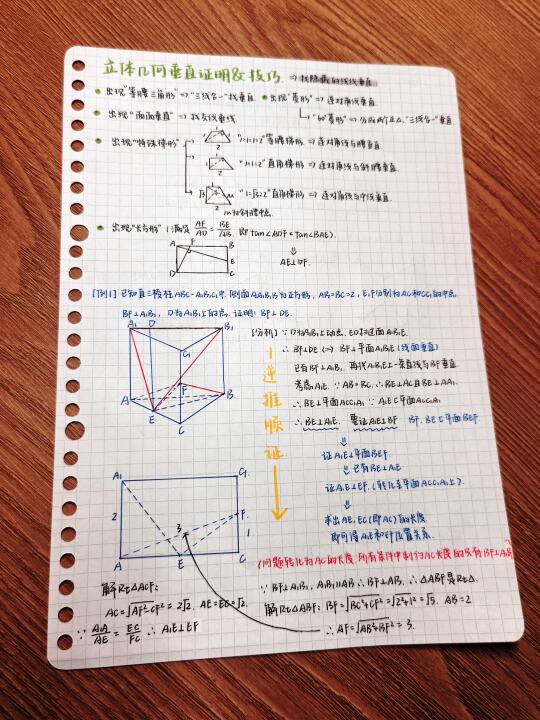 立体几何垂直证明&技巧 ⇒找隐藏的线线垂直
出现"等腰三角形"⇒"三线合一"找垂直 出现"菱形"⇒连对角线垂直
出现"面面垂直"⇒找交线垂线 "60°菱形"⇒分成两个正△,"三线合一"垂直
出现"特殊梯形" "1:1:1:2"等腰梯形⇒连对角线与腰垂直
"1:1:2"直角梯形⇒连对角线与斜腰垂直
"1:√2:2"直角梯形⇒连对角线与中线垂直
m为斜腰中点
出现"长方形"(满足 AF/AD = BE/AB, 即tan∠ADF=tan∠BAE)
⇓
AE⊥DF.
A F B
E
D C
[例1] 已知直三棱柱ABC-A₁B₁C₁中,侧面AA₁B₁B为正方形, AB=BC=2, E,F分别为AC和CC₁的中点,
BF⊥A₁B₁, D为A₁B₁上的点. 证明: BF⊥DE.
[分析] ∵D为A₁B₁上动点, ED扫过面A₁B₁E.
∴BF⊥DE ⟺ BF⊥平面A₁B₁E (线面垂直)
已有BF⊥A₁B₁, 再找A₁B₁E上一条直线与BF垂直
考虑A₁E. ∵AB=BC, ∴BE⊥AC且BE⊥AA₁
∴BE⊥平面ACC₁A₁ ∵A₁E⊂平面ACC₁A₁
∴BE⊥A₁E. 要证A₁E⊥BF BF, BE⊂平面BEF
⇓
证A₁E⊥平面BEF.
⇓已有BE⊥A₁E
证A₁E⊥EF. (转化至平面ACC₁A₁上)
⇓
求出AE, EC(即AC)的长度
即可得A₁E和EF位置关系.
逆推顺证
A₁ D B₁
C₁
F
A B
E
C
A₁ C₁
2 F
3 1
A E C
(问题转化为AC的长度,所有条件中制约AC长度的只有BF⊥A₁B₁)
∵BF⊥A₁B₁, A₁B₁∥AB ∴BF⊥AB, ∴△ABF是Rt△.
解Rt△ABF: BF=√BC²+CF²=√2²+1²=√5. AB=2
∴AF=√AB²+BF²=3.
解Rt△ACF:
AC=√AF²-CF²=2√2, AE=EC=√2.
∵ A₁A/AE = EC/FC ∴A₁E⊥EF